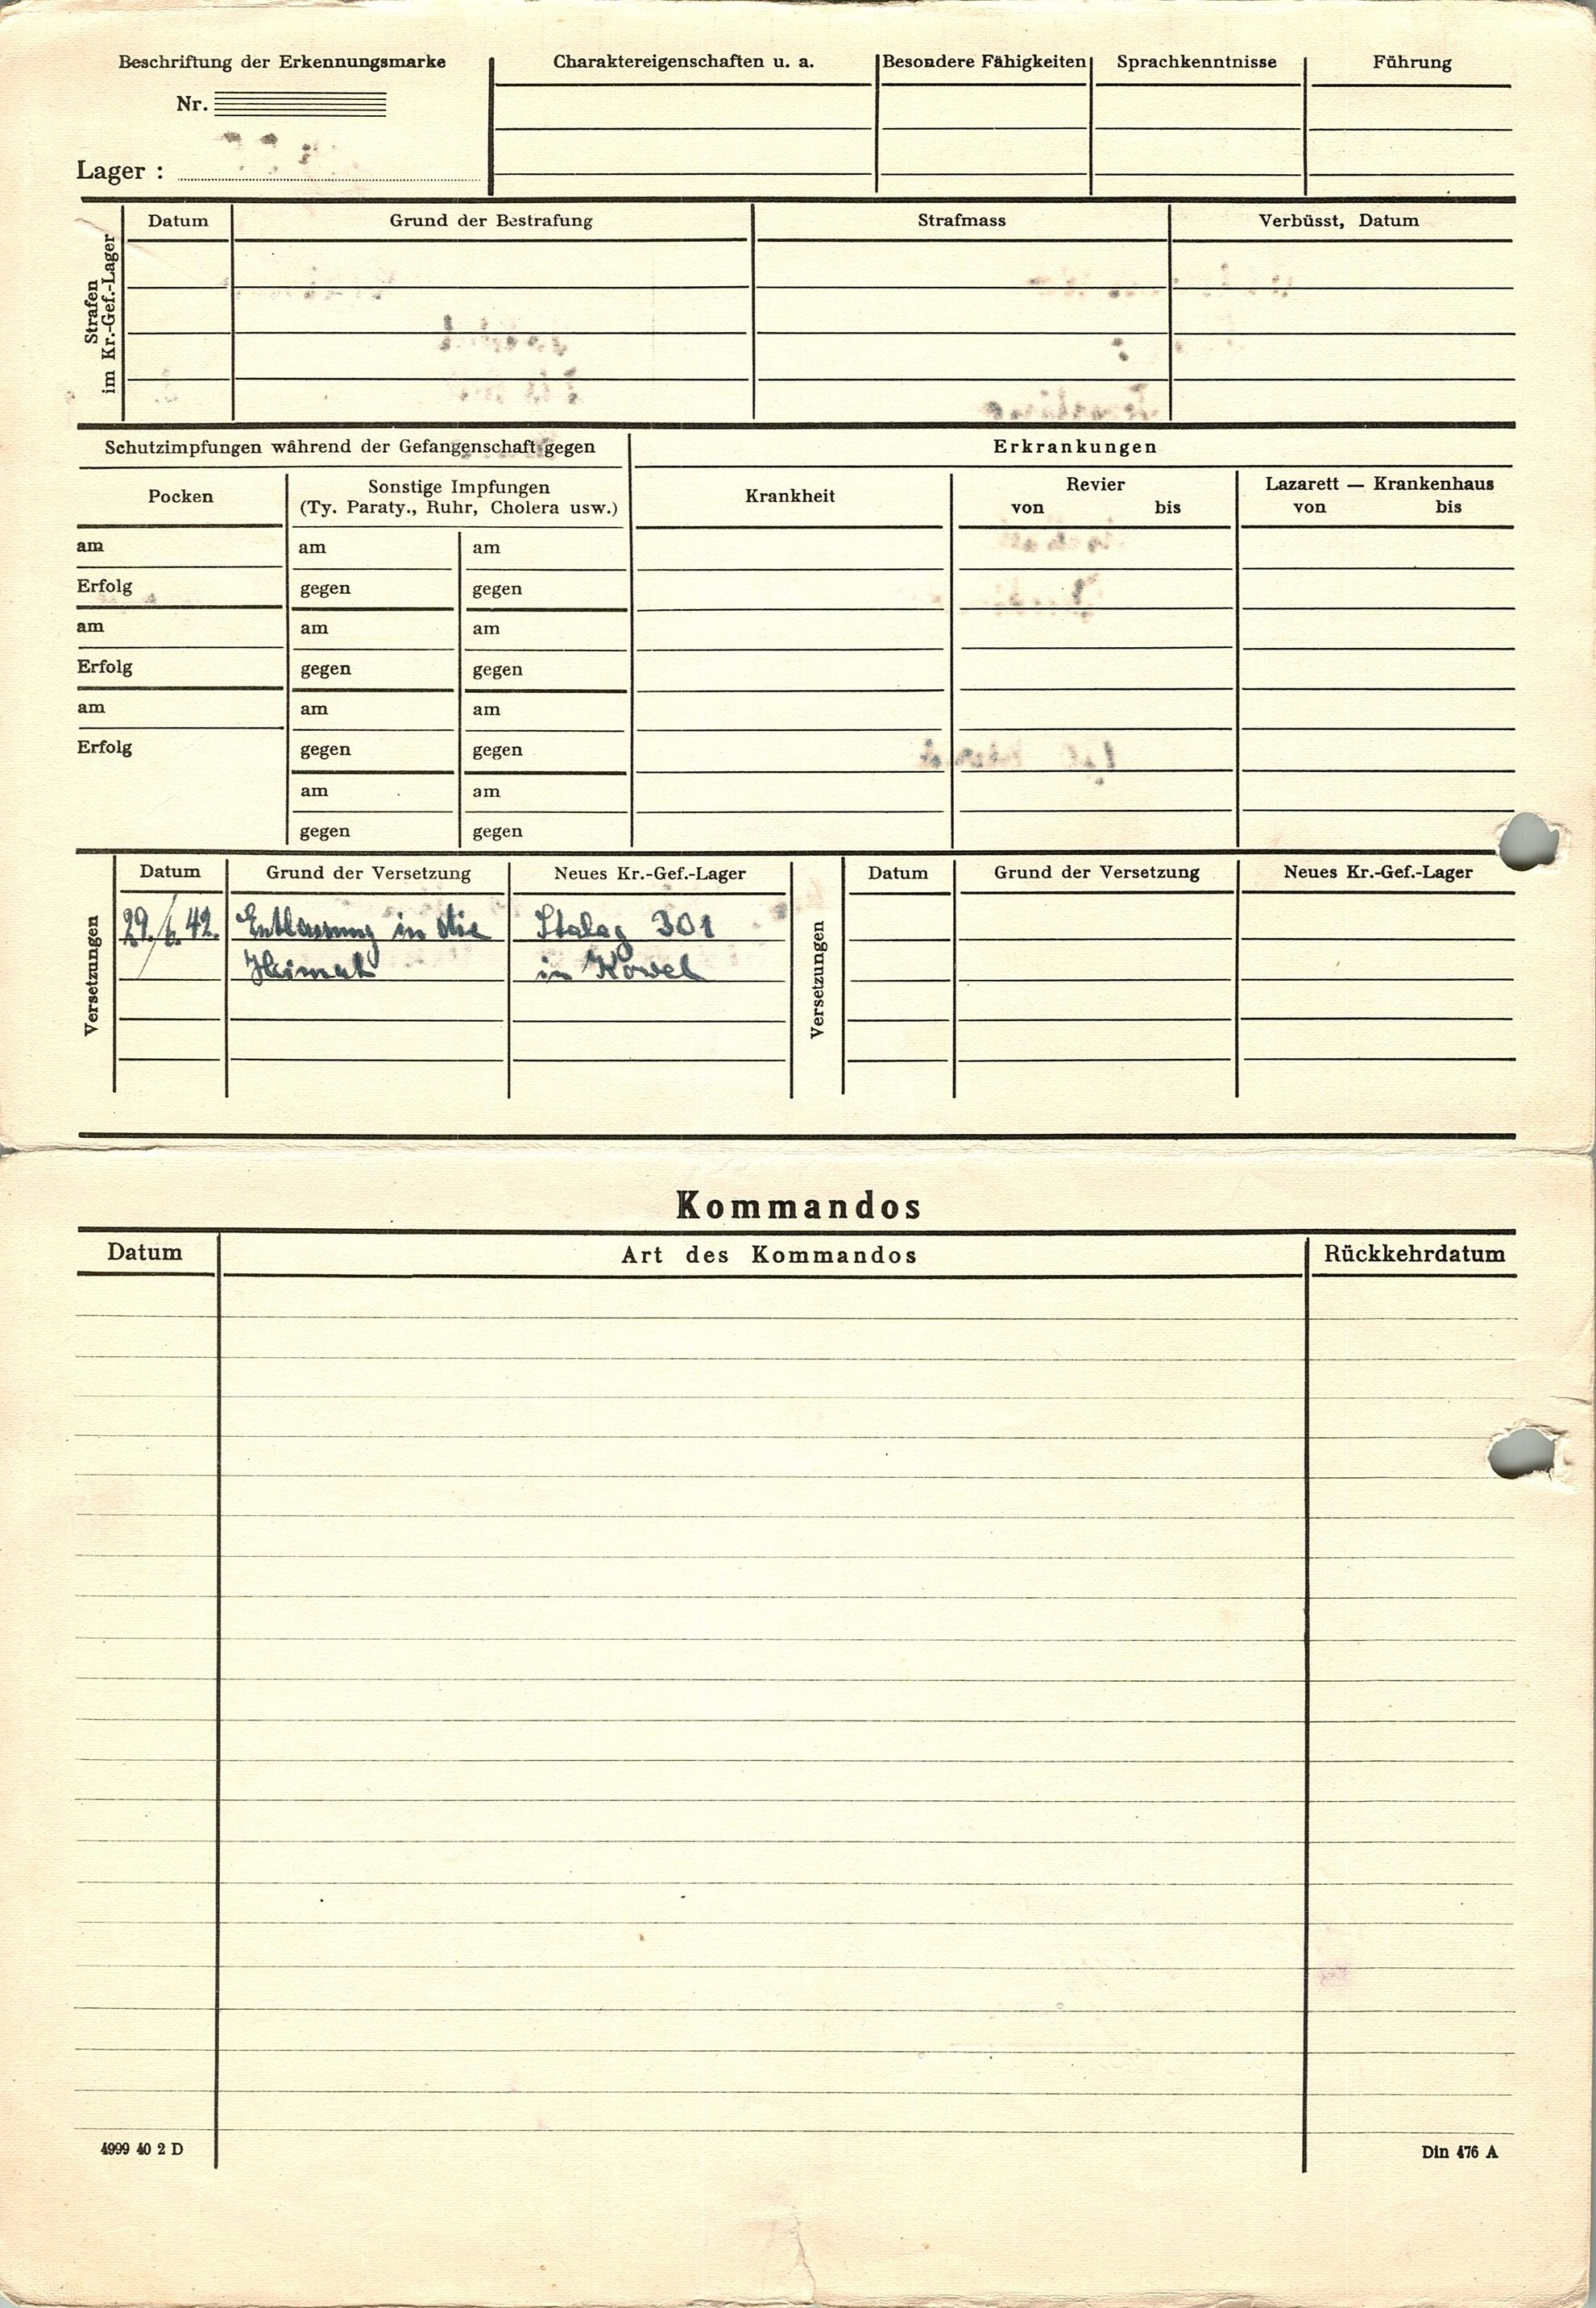 Beschriftung der Erkennungsmarke
Charaktereigenschaften u. a.
Besondere Fähigkeiten
Sprachkenntnisse
Führung
Nr.
Lager :
Strafen
im Kr.-Gef.-Lager
Datum
Grund der Bestrafung
Strafmass
Verbüsst, Datum
Schutzimpfungen während der Gefangenschaft gegen
Erkrankungen
Pocken
Sonstige Impfungen
(Ty. Paraty., Ruhr, Cholera usw.)
Krankheit
Revier
von bis
Lazarett — Krankenhaus
von bis
am am am
Erfolg gegen gegen
am am am
Erfolg gegen gegen
am am am
Erfolg gegen gegen
am am
gegen gegen
Versetzungen
Datum
Grund der Versetzung
Neues Kr.-Gef.-Lager
29./6.42. Entlassung in die Stalag 301
Heimat in Kowel
Versetzungen
Datum
Grund der Versetzung
Neues Kr.-Gef.-Lager
Kommandos
Datum
Art des Kommandos
Rückkehrdatum
4999 40 2 D
Din 476 A